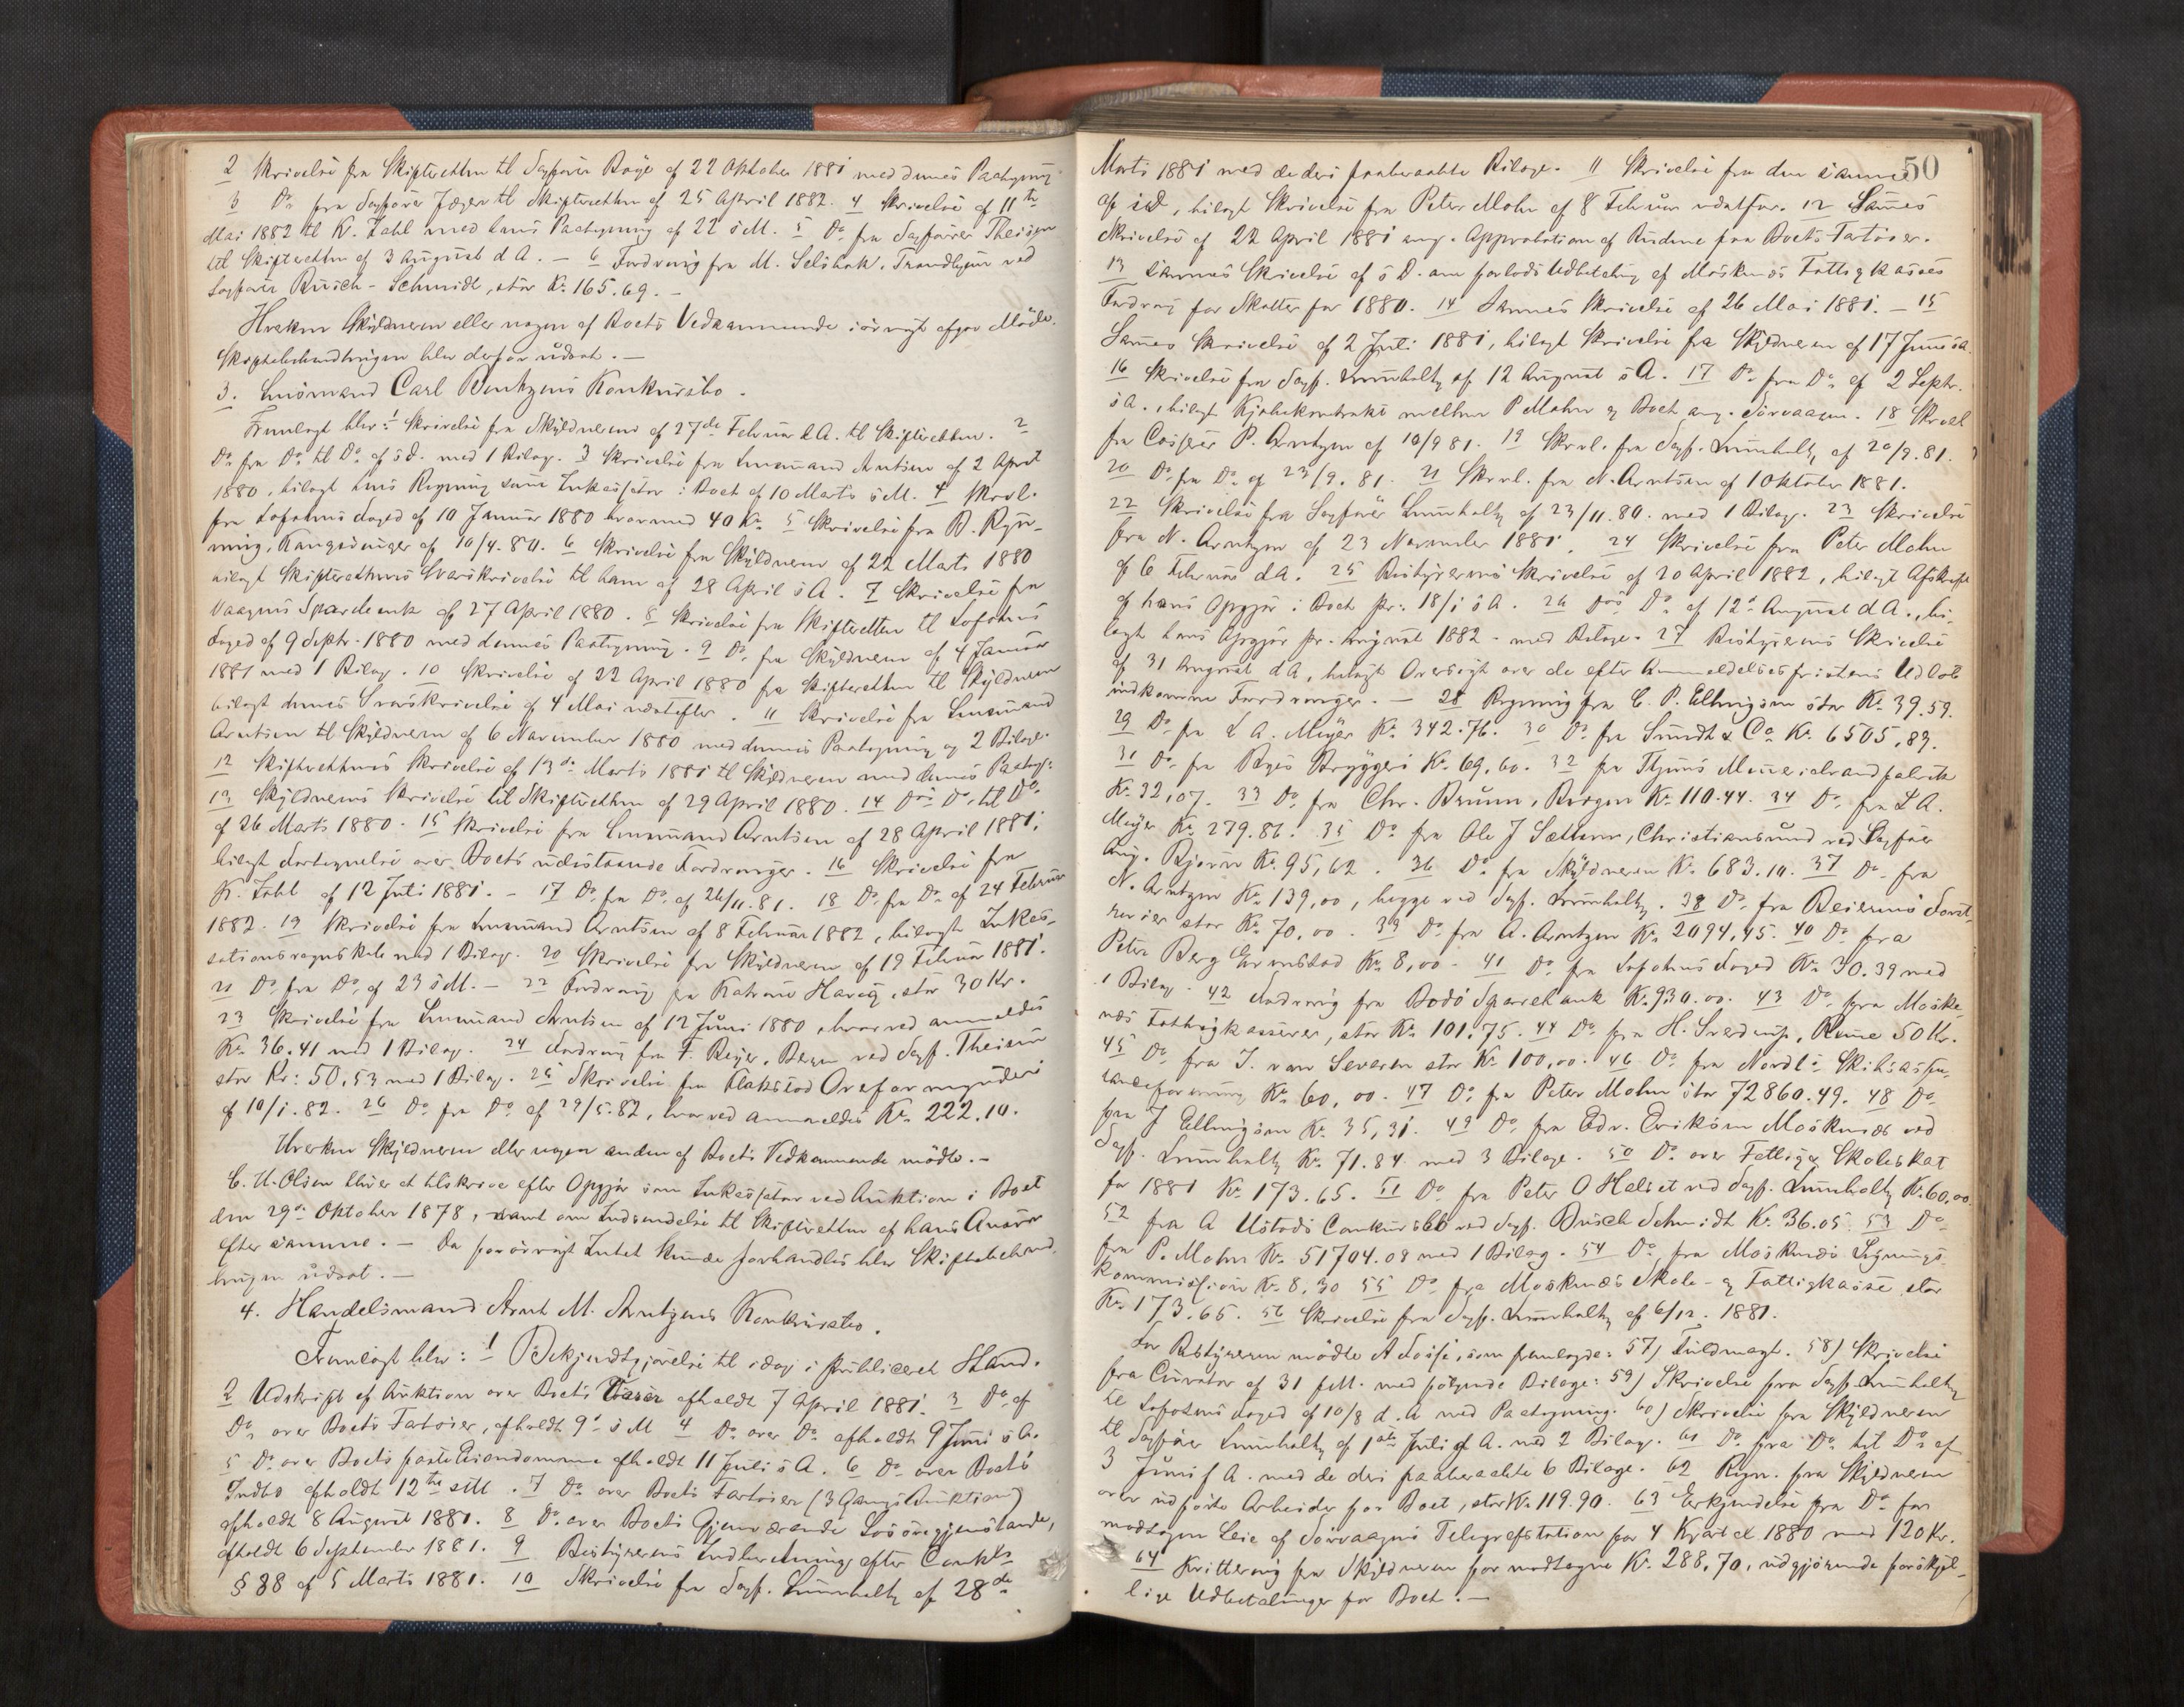 2 Skrivelse fra Skifteretten til Sagfører Bøye af 22 Oktober 1881 med dennes Paategning
3 Do fra Sagfører Jæger til Skifteretten af 25 April 1882. 4 Skrivelse af 11te
Mai 1882 til K. Zahl med hans Paategning af 22 s M. 5 Do fra Sagfører Theisen
til Skifteretten af 3 August d A. — 6 Fordring fra M. Selsbak, Trondhjem ved
Sagfører Busch-Schmidt, stor Kr. 165.69. —
Hverken Skyldneren eller nogen af Boets Vedkommende iøvrigt afgav Møde.
Skiftebehandlingen blev derfor udsat. —
3. Lensmand Carl Bentzens Konkursbo.
Fremlagt blev: 1 Skrivelse fra Skyldneren af 27de Februar d A. til Skifteretten. 2
Do fra Do til Do af s d. med 1 Bilag. 3 Skrivelse fra Lensmand Arntsen af 2 April
1880, bilagt hans Regning som Inkassator i Boet af 10 Marts s M. 4 Skrvl.
fra Lofotens Foged af 10 Januar 1880 hvormed 40 Kr. 5 Skrivelse fra B. Ryn-
ning, af 10/4. 80. 6 Skrivelse fra Skyldneren af 22 Marts 1880
bilagt Skifterettens Svarskrivelse til ham af 28 April s A. 7 Skrivelse fra
Vaagens Sparebank af 27 April 1880. 8 Skrivelse fra Skifteretten til Lofotens
Foged af 9 Septr. 1880 med dennes Paategning. 9 Do fra Skyldneren af 4 Januar
1881 med 1 Bilag. 10 Skrivelse af 22 April 1880 fra Skifteretten til Skyldneren
bilagt dennes Svarskrivelse af 4 Mai næstefter. 11 Skrivelse fra Lensmand
Arntsen til Skyldneren af 6 November 1880 med dennes Paategning og 2 Bilage.
12 Skifterettens Skrivelse af 13de Marts 1881 til Skyldneren med dennes Paateg:
13 Skyldnerens Skrivelse til Skifteretten af 29 April 1880. 14 Dos Do til Do
af 26 Marts 1880. 15 Skrivelse fra Lensmand Arntsen af 28 April 1881,
bilagt Fortegnelse over Boets udestaaende Fordringer. 16 Skrivelse fra
K. Zahl af 12 Juli 1881. — 17 Do fra Do af 26/11.81. 18 Do fra Do af 24 Februar
1882. 19 Skrivelse fra Lensmand Arntsen af 8 Februar 1882, bilagt Inkas-
sationsregnskab med 1 Bilag. 20 Skrivelse fra Skyldneren af 19 Februar 1881.
21 Do fra Do af 23 s M. — 22 Fordring fra Katrine Haveg, stor 30 Kr.
23 Skrivelse fra Lensmand Arntsen af 12 Juni 1880 hvorved anmeldes
Kr. 36.41 med 1 Bilag. 24 Fordring fra F. Beyer, Bergen ved Sagf. Theisen
stor Kr: 50,53 med 1 Bilag. 25 Skrivelse fra Flakstad Overformynderi
af 10/1.82. 26 Do fra Do af 29/5.82, hvorved anmeldes Kr. 222.10.
Hverken Skyldneren eller nogen anden af Boets Vedkommende mødte. —
C. U. Olsen bliver at tilskrive efter Opgjør som Inkassator ved Auktion i Boet
den 29de Oktober 1878, samt om Indsendelse til Skifteretten af hans Ansvar
efter samme. — Da forøvrigt Intet kunde forhandles blev Skiftebehand-
lingen udsat. —
4. Handelsmand Arnt M. Arntzens Konkursbo.
Fremlagt blev: 1 Bekjendtgjørelse til idag i publiceret Stand.
2 Udskrift af Auktion over Boets Varer afholdt 7 April 1881. 3 Do af
Do over Boets Fartøier, afholdt 9de s M 4 Do over Do afholdt 9 Juni s A.
5 Do over Boets faste Eiendomme afholdt 11 Juli s A. 6 Do over Boets
Indbo afholdt 12te sstl. 7 Do over Boets Fartøier (3 Gangs Auktion)
afholdt 8 August 1881. 8 Do over Boets Gjenværende Løsøregjenstande,
afholdt 6 September 1881. 9 Bestyrerens Indberetning efter Conkls
§ 38 af 5 Marts 1881. 10 Skrivelse fra Sagf. Lumholtz af 28de
50
Marts 1881 med de deri paaberaabte Bilage. 11 Skrivelse fra den samme
af s D, bilagt Skrivelse fra Peter Mohn af 8 Februar næstfør. 12 Sammes
Skrivelse af 22 April 1881 ang. Approbation af Budene paa Boets Fartøier.
13 Sammes Skrivelse af s D. om forlods Udbetaling af Moskenæs Fattigkasses
Fordring for Skatter for 1880. 14 Sammes Skrivelse af 26 Mai 1881. — 15
Sammes Skrivelse af 2 Juli 1881, bilagt Skrivelse fra Skyldneren af 17 Juni s a.
16 Skrivelse fra Sagf. Lumholtz af 12 August s A. 17 Do fra Do af 2 Septr.
s a., bilagt Kjøbekontrakt mellem P Mohn og Boet ang. Sørvaagen. 18 Skrvl
fra Casper P. Arntzen af 10/9 81. 19 Skrvl. fra Sagf. Lumholtz af 20/9.81.
20 Do fra Do af 23/9.81. 21 Skrvl. fra N. Arntsen af 1 Oktober 1881.
22 Skrivelse fra Sagfører Lumholtz af 23/11.80. med 1 Bilag. 23 Skrivelse
fra N. Arntzen af 23 November 1881. 24 Skrivelse fra Peter Mohn
af 6 Februar d A. 25 Bestyrerens Skrivelse af 20 April 1882, bilagt Afskrift
af hans Opgjør i Boet pr: 18/1 s A. 26 Dos Do af 12te August d A., bi-
lagt hans Opgjør pr. August 1882 med Bilage. 27 Bestyrerens Skrivelse
af 31 August d A, bilagt Oversigt over de efter Anmeldelsesfristens Udløb
indkomne Fordringer. — 28 Regning fra C. P. Ellingsen stor Kr. 39.59.
29 Do fra L A. Meyer Kr. 342.76. 30 Do fra Sundt & Co Kr. 6505,83.
31 Do fra Byes Bryggeri Kr. 69,60. 32 fra Tjems Mineralvandfabrik
Kr. 32,07. 33 Do fra Chr. Bruun, Bergen Kr. 110.44. 34 Do fra L A.
Meyer Kr. 279.86. 35 Do fra Ole J Sættem, Christiansund ved Sagfør
Aug. Bjerre Kr. 95,62. 36 Do fra Skyldneren Kr. 683.10. 37 Do fra
N. Arntzen Kr. 139,00, begge ved Sagf. Lumholtz. 38 Do fra Beierens Forst-
revier stor Kr. 70,00. 39 Do fra A. Arntzen Kr. 2094,45. 40 Do fra
Peter Berg Grimstad Kr. 8,00. 41 Do fra Lofotens Foged Kr. 30.39 med
1 Bilag. 42 Fordring fra Bodø Sparebank Kr. 930.00. 43 Do fra Moske-
næs Fattigkasserer, stor Kr. 101.75. 44 Do fra H. Sverdrup, Reine 50 Kr.
45 Do fra J. van Severen stor Kr. 100,00. 46 Do fra Nordls Skibsassu-
ranceforening Kr. 60,00. 47 Do fra Peter Mohn stor 72860.49. 48 Do
fra J Ellingsen Kr. 35,31. 49 Do fra Edv. Eriksen Moskenæs ved
Sagf. Lumholtz Kr. 71.84. med 3 Bilage. 50 Do over Fattig og Skoleskat
for 1881 Kr. 173.65. 51 Do fra Peter O Helset ved Sagf. Lumholtz Kr. 60,00.
52 fra A Ustads Conkursbo ved Sagf. Busch Schmidt Kr. 36.05. 53 Do
fra P. Mohn Kr. 51704.08 med 1 Bilag. 54 Do fra Moskenæs Lignings-
kommission Kr. 8,30 55 Do fra Moskenæs Skole- og Fattigkasse stor
Kr. 173.65. 56 Skrivelse fra Sagf. Lumholtz af 6/12. 1881.
For Bestyreren mødte A Fosse, som fremlagde: 57) Fuldmagt. 58) Skrivelse
fra Curator af 31 f M. med følgende Bilage: 59) Skrivelse fra Sagf. Lumholtz
til Lofotens Foged af 10/8 d. A med Paategning. 60) Skrivelse fra Skyldneren
til Sagfører Lumholtz af 1ste Juli f A. med 2 Bilag. 61 Do fra Do til Do af
3 Juni f A. med de deri paaberaabte 6 Bilage. 62 Regn. fra Skyldneren
over udførte Arbeider for Boet, stor Kr. 119.90. 63 Erkjendelse fra Do for
modtagen Leie af Sørvaagens Telegrafstation for 4 Kvartal 1880 med 120 Kr.
64 Kvittering fra Skyldneren for modtagne Kr. 288,70, udgjørende forskjel-
lige Udbetalinger for Boet. —